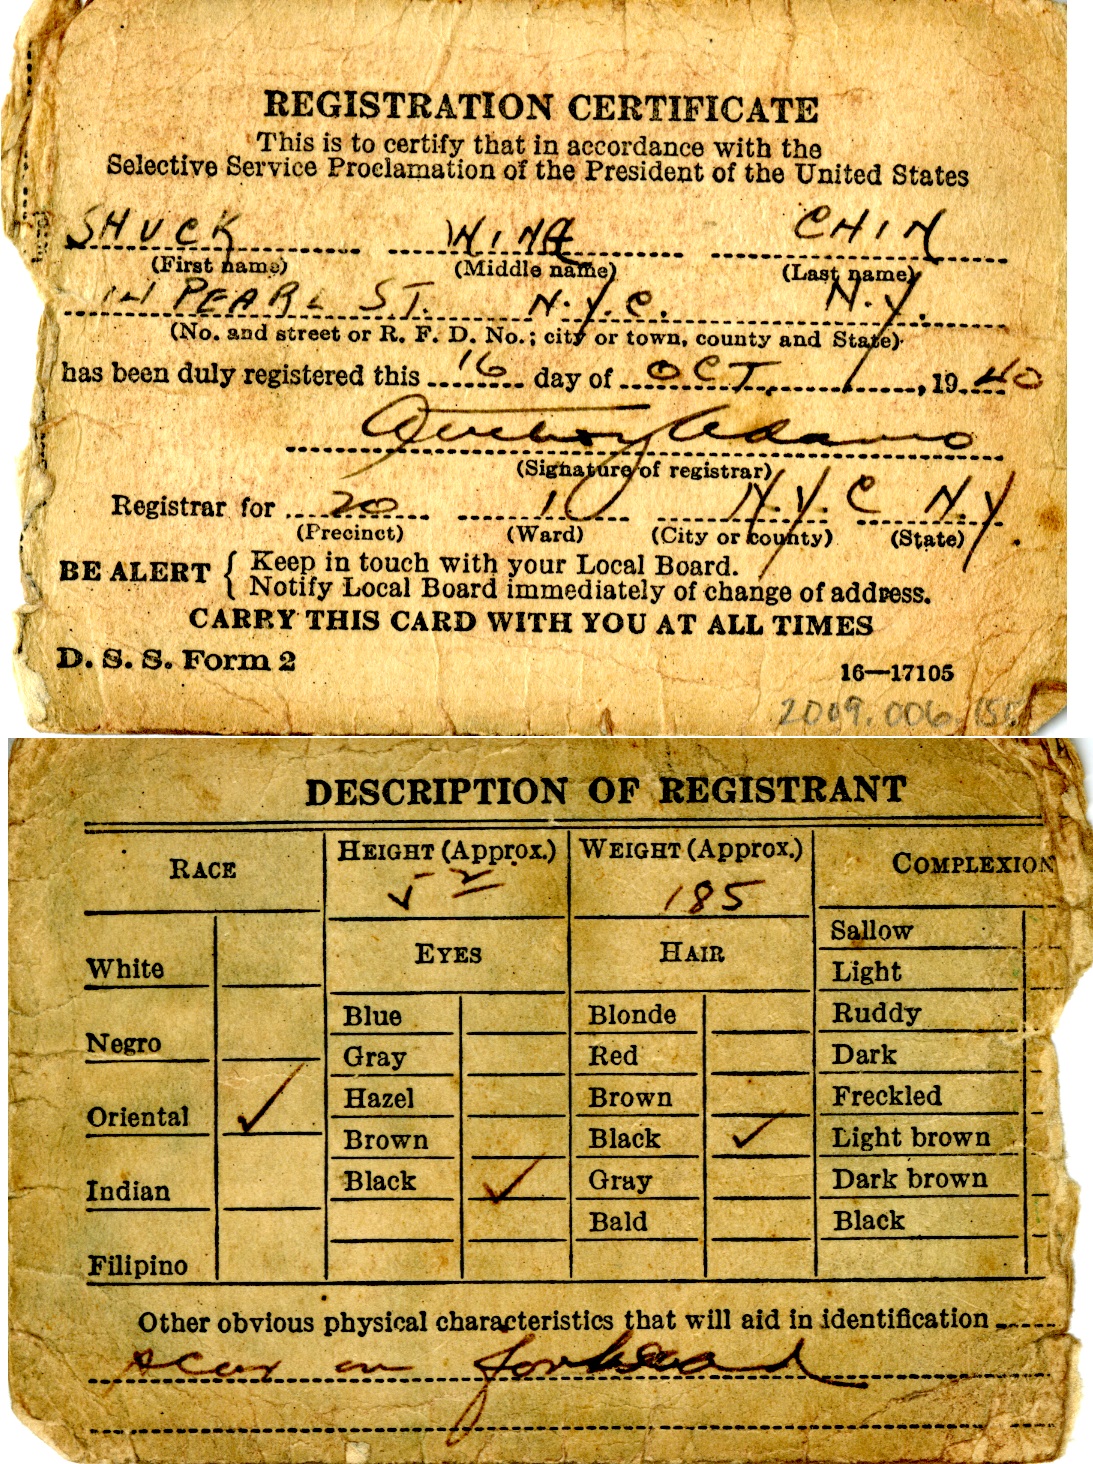 REGISTRATION CERTIFICATE
This is to certify that in accordance with the
Selective Service Proclamation of the President of the United States
SHUCK WING CHIN
(First name) (Middle name) (Last name)
PEARL ST. N.Y.C. N.Y.
(No. and street or R. F. D. No.; city or town, county and State)
has been duly registered this 16 day of OCT. , 19 40
Adams
(Signature of registrar)
Registrar for 20 1 N.Y.C N.Y.
(Precinct) (Ward) (City or county) (State)
BE ALERT { Keep in touch with your Local Board.
Notify Local Board immediately of change of address.
CARRY THIS CARD WITH YOU AT ALL TIMES
D. S. S. Form 2
16—17105
2009.006.
DESCRIPTION OF REGISTRANT
RACE HEIGHT (Approx.) WEIGHT (Approx.) COMPLEXION
5 2 185
EYES HAIR
Sallow
White Light
Blue Blonde Ruddy
Negro Gray Red Dark
Hazel Brown Freckled
Oriental ✓ Brown Black ✓ Light brown
Indian Black ✓ Gray Dark brown
Bald Black
Filipino
Other obvious physical characteristics that will aid in identification
scar on forhead